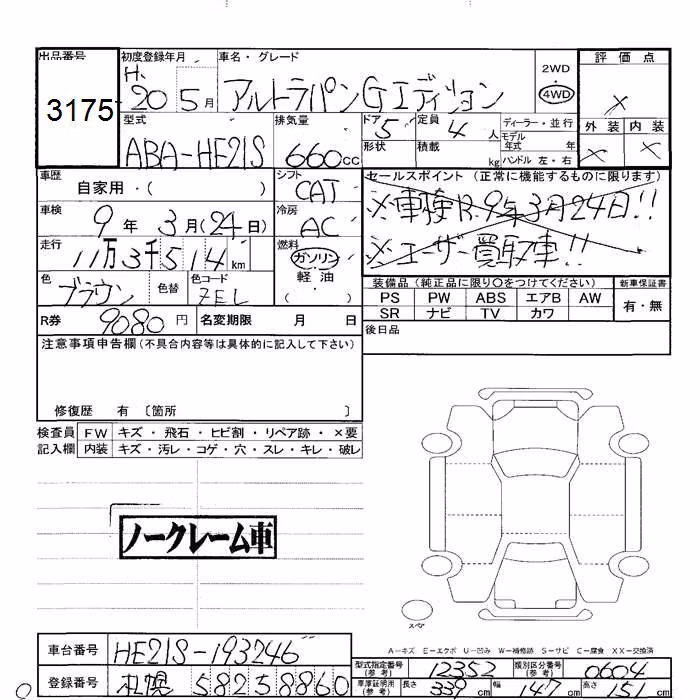 出品番号 初度登録年月 車名・グレード 評価点
3175 H.20 5月 アルトラパンGエディション 2WD 4WD ×
型式 排気量 ドア 5 定員 4人 ディーラー・並行 外装 内装
ABA-HE21S 660cc 形状 積載 kg モデル年式 年 ハンドル 左・右 × ×
車歴 自家用・( ) シフト CAT セールスポイント (正常に機能するものに限ります)
車検 9年 3月(24日) 冷房 AC ※車検R.9年3月24日!!
走行 11万3千514km 燃料 ガソリン・軽油・( ) ※ユーザー買取車!!
色 ブラウン 色替 色コード ZEL 装備品 (純正品に限り○をつけてください) 新車保証書
PS PW ABS エアB AW 有・無
R券 9080円 名変期限 月 日 SR ナビ TV カワ
注意事項申告欄 (不具合内容等は具体的に記入して下さい) 後日品
修復歴 有 〔箇所 〕
検査員 FW キズ・飛石・ヒビ割・リペア跡・×要
記入欄 内装 キズ・汚レ・コゲ・穴・スレ・キレ・破レ
ノークレーム車
スペア
A-キズ E-エクボ U-凹み W-補修跡 S-サビ C-腐食 XX-交換済
車台番号 HE21S-193246 型式指定番号(参考) 12352 類別区分番号(参考) 0604
登録番号 札幌 582 58860 車庫証明用(参考) 長さ 339cm 幅 147cm 高さ 151cm